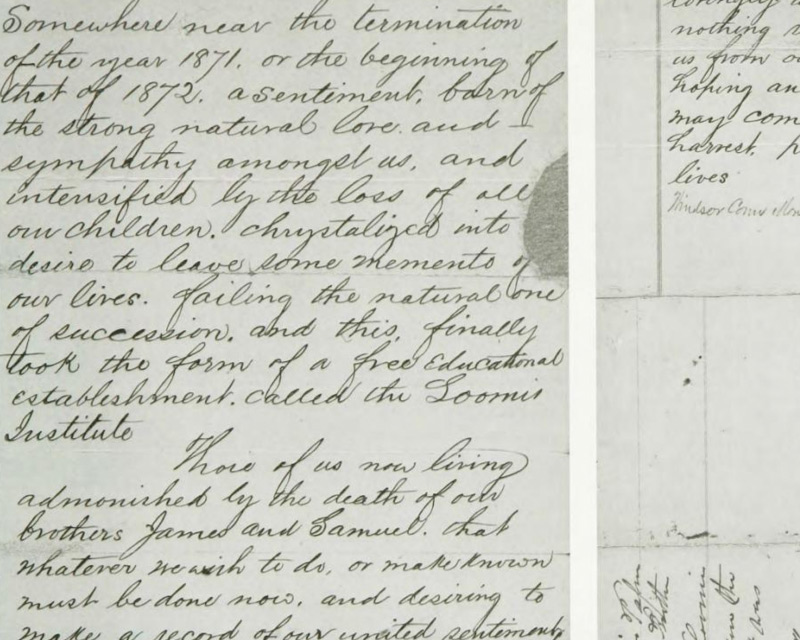 Somewhere near the termination
of the year 1871. or the beginning of
that of 1872. a sentiment, born of
the strong natural love and
sympathy amongst us, and
intensified by the loss of all
our children. chrystalized into
desire to leave some memento of
our lives. failing the natural one
of succession. and this, finally
took the form of a free Educational
establishment. called the Loomis
Institute
Those of us now living
admonished by the death of our
brothers James and Samuel. that
whatever we wish to do, or make known
must be done now. and desiring to
make a record of our united sentiments
nothing
us from
hoping an
may com
harvest.
lives
Windsor Conn